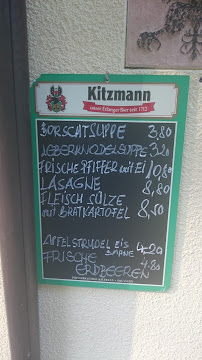 Kitzmann
unser Erlanger Bier seit 1712
BORSCHTSUPPE 3,80
LEBERKNÖDELSUPPE 3,20
FRISCHE PFIFFER mit EI 10,80
LASAGNE 8,80
FLEISCH SÜLZE
mit BRATKARTOFEL 8,50
APFELSTRUDEL EIS SAHNE 4,20
FRISCHE
ERDBEEREN 4,80